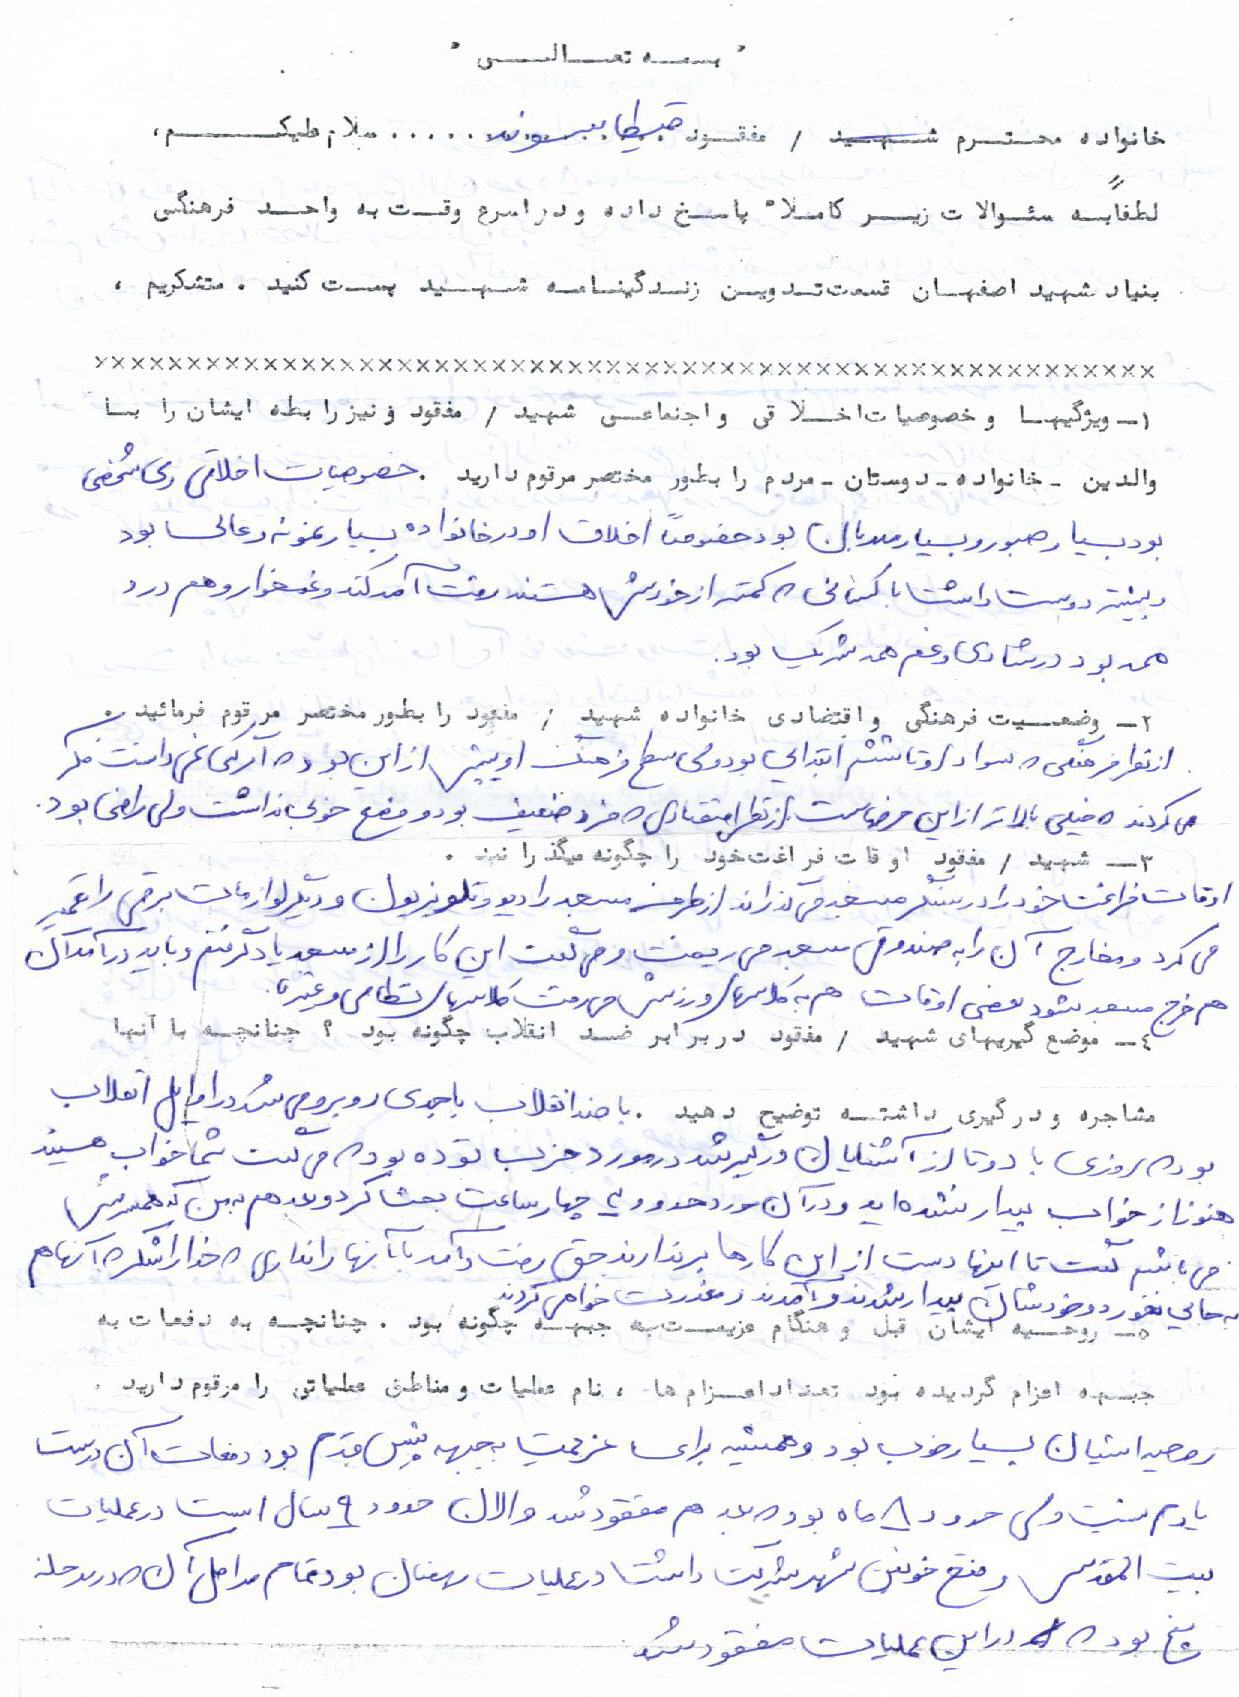 " بسمه تعالی "
خانواده محترم شهید / مفقود ..... سلام علیکم ،
لطفا به سئوالات زیر کاملا" پاسخ داده و در اسرع وقت به واحد فرهنگی
بنیاد شهید اصفهان قسمت تدوین زندگینامه شهید پست کنید . متشکریم ،
××××××××××××××××××××××××××××××××××××××××××××××××××××××××××
۱ـ ویژگیها و خصوصیات اخلاقی و اجتماعی شهید / مفقود و نیز رابطه ایشان را با
والدین ـ خانواده ـ دوستان ـ مردم را بطور مختصر مرقوم دارید . خصوصیات اخلاقی وی شخصی
بود بسیار صبور و بسیار مهربان بود خصوصاً اخلاق او در خانواده بسیار نمونه و عالی بود
و بیشتر دوست داشت با کسانی که کمتر از خودش هستند رفت آمد کند و غمخوار و هم درد
همه بود در شادی و غم همه شریک بود.
۲ـ وضعیت فرهنگی و اقتصادی خانواده شهید / مفقود را بطور مختصر مرقوم فرمائید .
از نظر فرهنگی که سواد او تا ششم ابتدایی بود ولی سطح فرهنگ او بیش از این بود که اگر کسی نمی دانست فکر
می کردند که خیلی بالاتر از این حرفهاست . از نظر اقتصادی که فرد ضعیف بود و وضع خوبی نداشت ولی راضی بود.
۳ـ شهید / مفقود اوقات فراغت خود را چگونه میگذرانید .
اوقات فراغت خود را در سنگر مسجد می گذراند از طرف مسجد رادیو و تلویزیون و دیگر لوازمات برقی را تعمیر
می کرد و مخارج آن را به صندوق مسجد می ریخت و می گفت این کار را از مسجد یاد گرفتم و باید درآمد آن
هم خرج مسجد بشود بعضی اوقات هم به کلاسهای ورزش می رفت کلاسهای نظامی و غیره.
۴ـ موضع گیریهای شهید / مفقود در برابر ضد انقلاب چگونه بود ؟ چنانچه با آنها
مشاجره و درگیری داشته توضیح دهید . با ضد انقلاب با جدی روبرو می شد در اوایل انقلاب
بود که روزی با دو تا از آشنایان درگیر شد در مورد حزب توده بود که می گفت شما خواب هستید
هنوز از خواب بیدار نشده اید و در آن مورد حدود چهار ساعت بحث کرد و بعد هم به من که همسرش
می باشم گفت تا اینها دست از این کارها برندارند حق رفت و آمد با آنها را نداری که خدا را شکر که آنها هم
به جایی نخورد و خودشان بیدار شدند و آمدند و معذرت خواهی کردند
۵ـ روحیه ایشان قبل و هنگام عزیمت به جبهه چگونه بود . چنانچه به دفعات به
جبهه اعزام گردیده بود تعداد اعزام ها ، نام عملیات و مناطق عملیاتی را مرقوم دارید .
روحیه ایشان بسیار خوب بود و همیشه برای عزیمت به جبهه پیش قدم بود دفعات آن درست
یادم نیست ولی حدود ۸ ماه بود که بعد هم مفقود شد و الان حدود ۹ سال است در عملیات
بیت المقدس و فتح خونین شهر شرکت داشت در عملیات رمضان بود تمام مراحل آن که در مرحله
پنج بود که در این عملیات مفقود شد